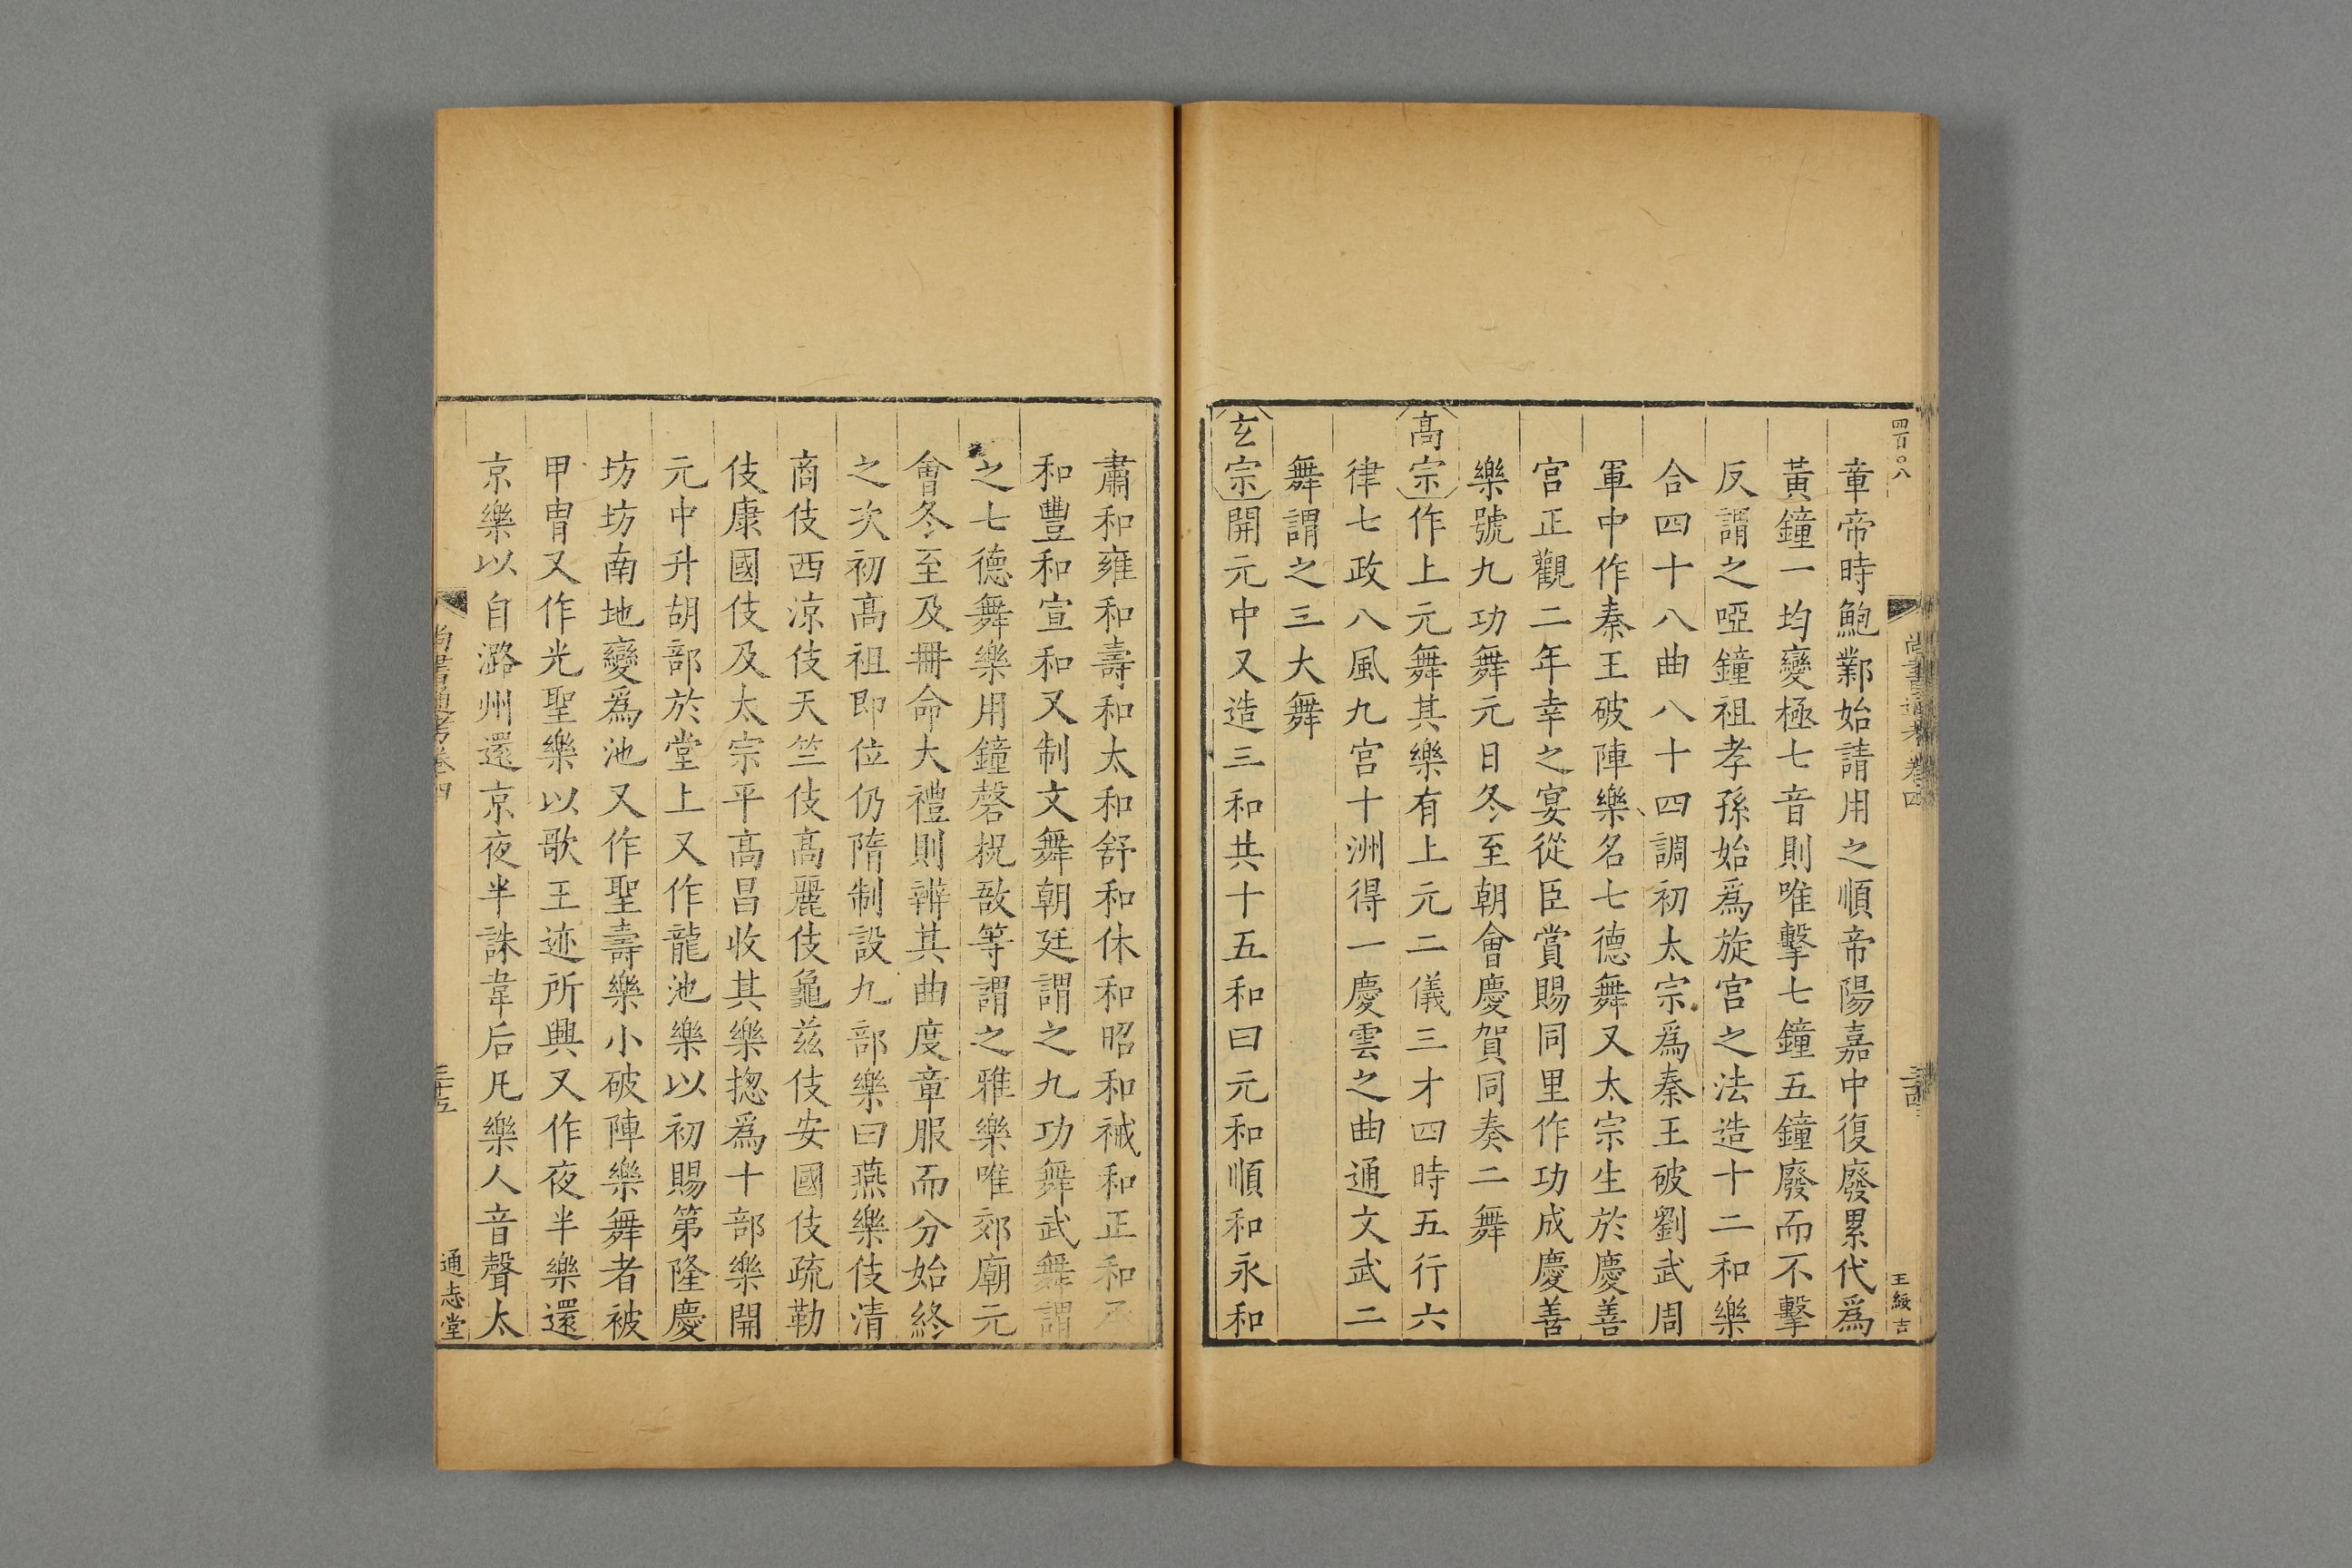 四百〇八
尚書通考卷四
王綬吉
章帝時鮑鄴始請用之順帝陽嘉中復廢累代爲
黃鐘一均變極七音則唯擊七鐘五鐘廢而不擊
反謂之啞鐘祖孝孫始爲旋宮之法造十二和樂
合四十八曲八十四調初太宗爲秦王破劉武周
軍中作秦王破陣樂名七德舞又太宗生於慶善
宮正觀二年幸之宴從臣賞賜同里作功成慶善
樂號九功舞元日冬至朝會慶賀同奏二舞
高宗作上元舞其樂有上元二儀三才四時五行六
律七政八風九宮十洲得一慶雲之曲通文武二
舞謂之三大舞
玄宗開元中又造三和共十五和曰元和順和永和
肅和雍和壽和太和舒和休和昭和祴和正和
和豐和宣和又制文舞朝廷謂之九功舞武舞謂
之七德舞樂用鐘磬柷敔等謂之雅樂唯郊廟元
會冬至及冊命大禮則辨其曲度章服而分始終
之次初高祖即位仍隋制設九部樂曰燕樂伎清
商伎西涼伎天竺伎高麗伎龜茲伎安國伎疏勒
伎康國伎及太宗平高昌收其樂揔爲十部樂開
元中升胡部於堂上又作龍池樂以初賜第隆慶
坊坊南地變爲池又作聖壽樂小破陣樂舞者被
甲冑又作光聖樂以歌王迹所興又作夜半樂還
京樂以自潞州還京夜半誅韋后凡樂人音聲太
尚書通考卷四
三十五
通志堂